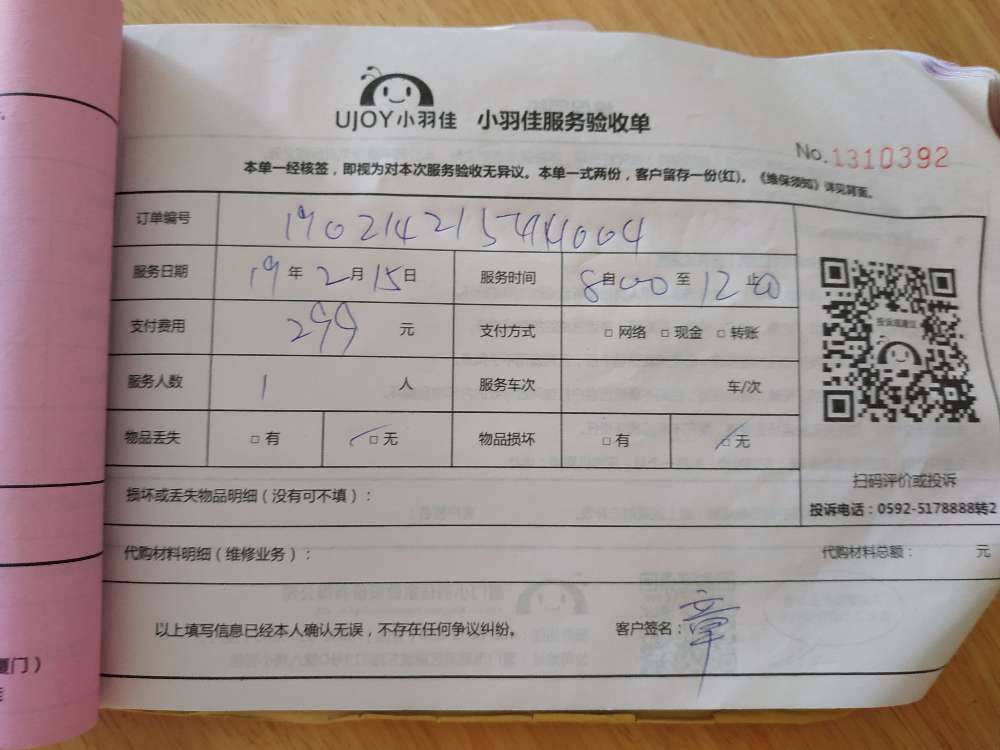 UJOY小羽佳 小羽佳服务验收单
No.1310392
本单一经核签，即视为对本次服务验收无异议。本单一式两份，客户留存一份(红)。《维保须知》详见背面。
订单编号 190214215744004
服务日期 19年2月15日 服务时间 自8:00至12止00
支付费用 299 元 支付方式 □ 网络 □ 现金 □ 转账
服务人数 1 人 服务车次 车/次
物品丢失 □ 有 □ 无 物品损坏 □ 有 □ 无
扫码评价或投诉
投诉电话：0592-5178888转2
损坏或丢失物品明细（没有可不填）：
代购材料明细（维修业务）： 代购材料总额： 元
以上填写信息已经本人确认无误，不存在任何争议纠纷。 客户签名：章
厦门）